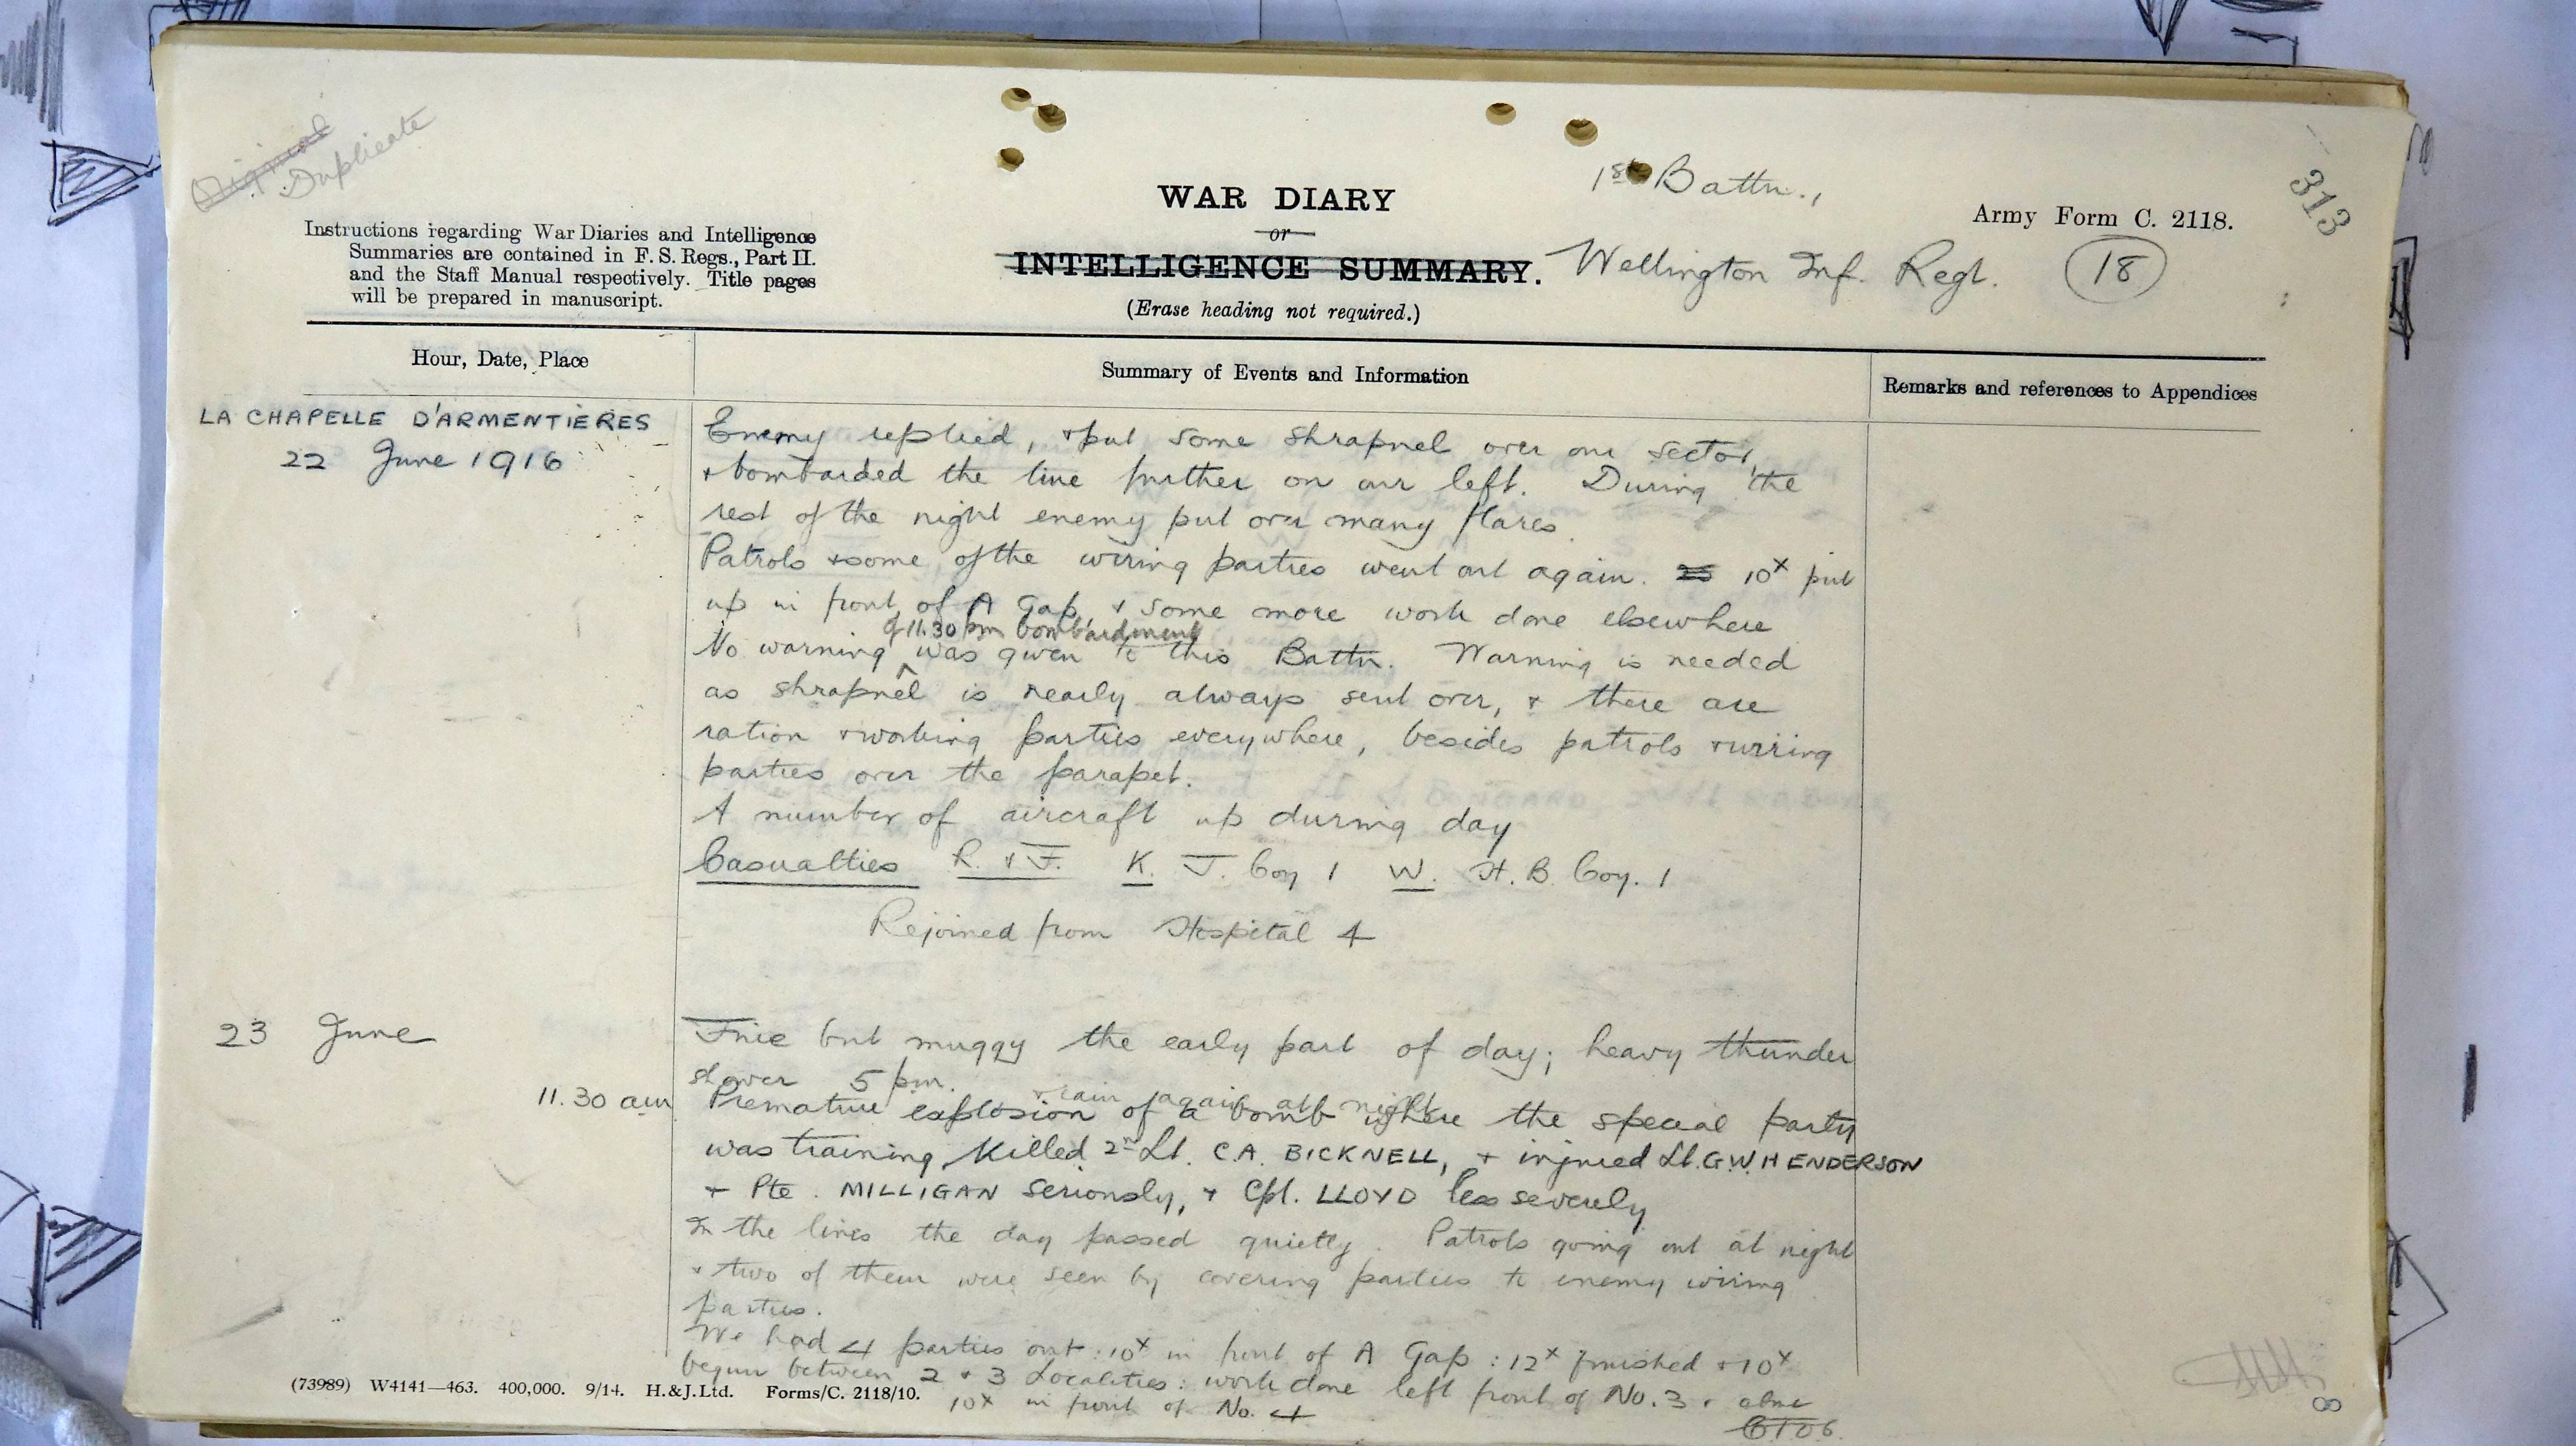 Original
Duplicate
1st Battn.,
313
WAR DIARY
or
INTELLIGENCE SUMMARY.
(Erase heading not required.)
Wellington Inf. Regt.
Army Form C. 2118.
18
Instructions regarding War Diaries and Intelligence
Summaries are contained in F. S. Regs., Part II.
and the Staff Manual respectively. Title pages
will be prepared in manuscript.
Hour, Date, Place
Summary of Events and Information
Remarks and references to Appendices
LA CHAPELLE D'ARMENTIÈRES
22 June 1916
Enemy replied, & put some shrapnel over our sector,
& bombarded the line further on our left. During the
rest of the night enemy put over many flares.
Patrols & some of the wiring parties went out again. 10x put
up in front of A Gap & some more work done elsewhere
of 11.30 pm bombardment
No warning was given to this Battn. Warning is needed
as shrapnel is nearly always sent over, & there are
ration & working parties everywhere, besides patrols & wiring
parties over the parapet.
A number of aircraft up during day
Casualties R. & F. K. T. Coy 1 W. H.B. Coy. 1
Rejoined from Hospital 4
23 June
Fine but muggy the early part of day; heavy thunder
shower 5 pm. & rain again at night
11.30 am
Premature explosion of a bomb where the special party
was training, killed 2nd Lt. C.A. BICKNELL, & injured Lt. G.W. HENDERSON
& Pte. MILLIGAN seriously, & Cpl. LLOYD less severely
In the lines the day passed quietly. Patrols going out at night
& two of them were seen by covering parties to enemy wiring
parties.
We had 4 parties out: 10x in front of A Gap: 12x finished & 10x
begun between 2 & 3 Localities: work done left front of No. 3 &
10x in front of No. 4
(73989) W4141—463. 400,000. 9/14. H.&J.Ltd. Forms/C. 2118/10.
8